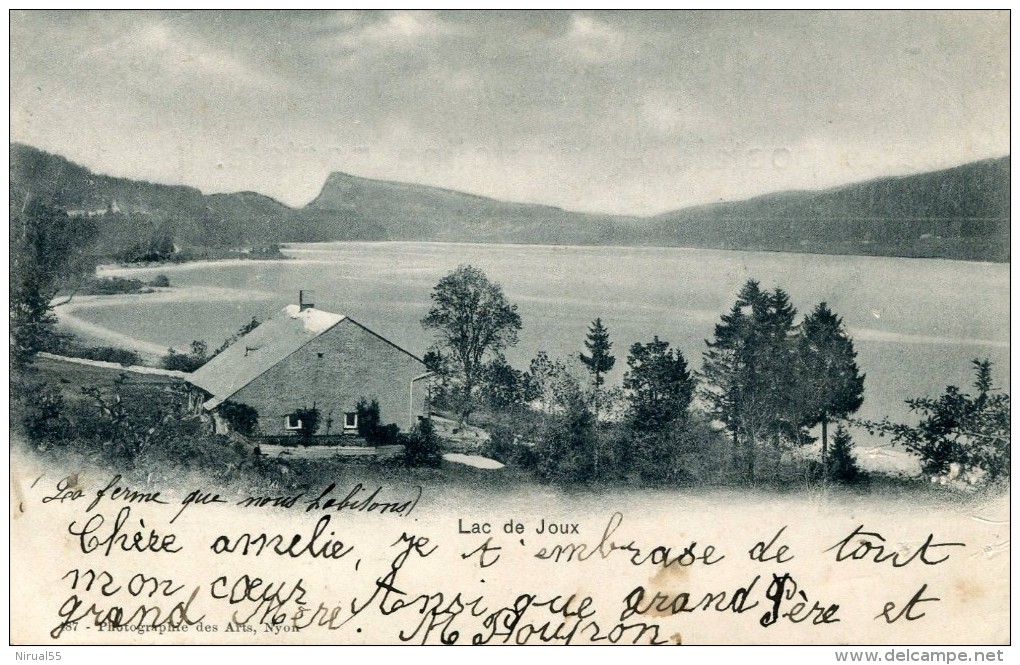 (La ferme que nous habitons)
Lac de Joux
Chère amelie, je t'embrase de tout
mon cœur Ansi que grand Père et
grand Mère.
187 - Photographie des Arts, Nyon
Nirual55
www.delcampe.net